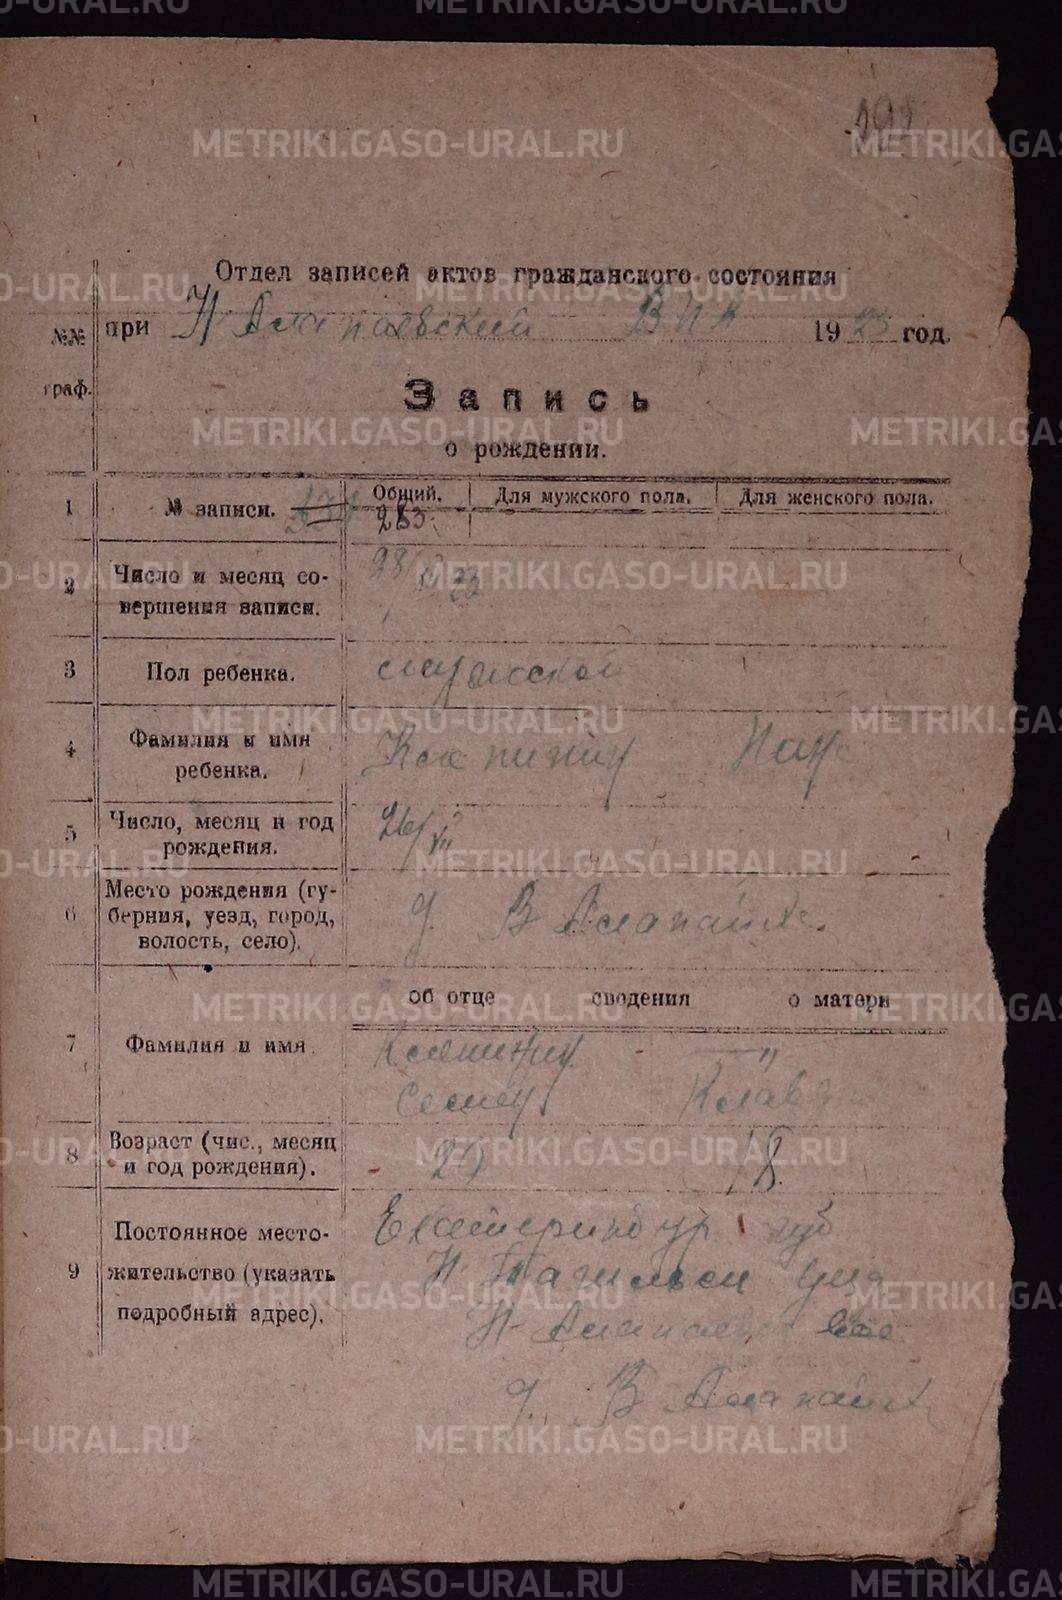 191
Отдел записей актов гражданского состояния
при Н Алапаевский ВИК 1923 год.
№№ граф.
Запись
о рождении.
1 № записи. Общий. Для мужского пола. Для женского пола.
283
2 Число и месяц со-
вершения записи.
28/VII 23
3 Пол ребенка. мужской
4 Фамилия и имя
ребенка.
5 Число, месяц и год
рождения.
26/VII
6 Место рождения (гу-
берния, уезд, город,
волость, село).
д. В Алапаиха
об отце сведения о матери
7 Фамилия и имя
8 Возраст (чис., месяц
и год рождения).
18
9 Постоянное место-
жительство (указать
подробный адрес).
Екатеринбур губ
Н Тагильск уезд
Н Алапаевск вол
д. В Алапаих
METRIKI.GASO-URAL.RU